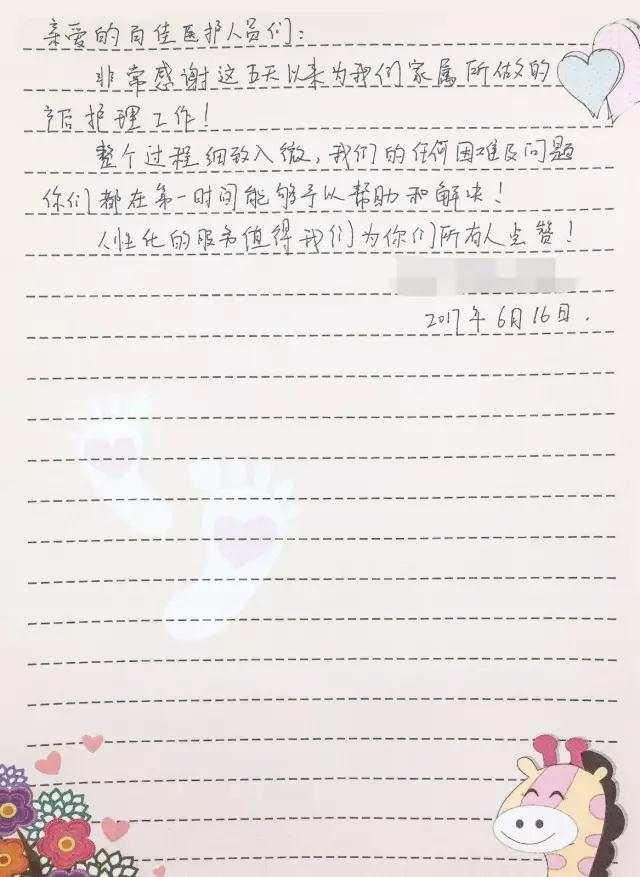 亲爱的百佳医护人员们：
非常感谢这五天以来为我们家属所做的
产后护理工作！
整个过程细致入微，我们的任何困难及问题
你们都在第一时间能够予以帮助和解决！
人性化的服务值得我们为你们所有人点赞！
2017年6月16日.